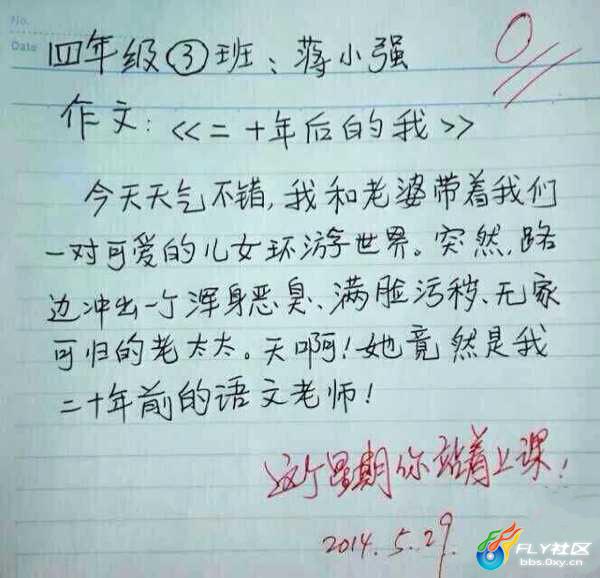 No.
Date
四年级③班:蒋小强
0
作文:《二十年后的我》
今天天气不错,我和老婆带着我们
一对可爱的儿女环游世界。突然,路
边冲出一个浑身恶臭、满脸污秽、无家
可归的老太太。天啊!她竟然是我
二十年前的语文老师!
这个星期你站着上课!
2014.5.29.
FLY社区
bbs.0xy.cn